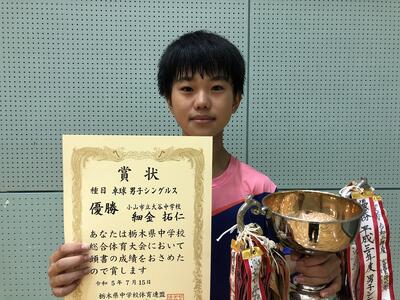 賞状
種目 卓球 男子シングルス
優勝 小山市立大谷中学校
細金 拓仁
あなたは栃木県中学校
総合体育大会において
頭書の成績をおさめた
ので賞します
令和 5年 7月15日
栃木県中学校体育連盟
優勝 平成三年度 男子